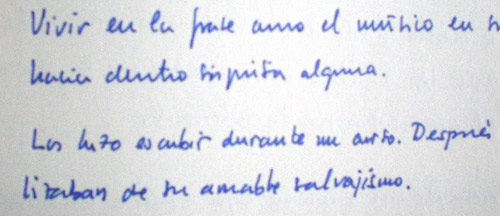 Vivir en la frase como el músico en s
hacia dentro sin prisa alguna.
Los hizo escribir durante un curso. Después
lizaban de su amable salvajismo.